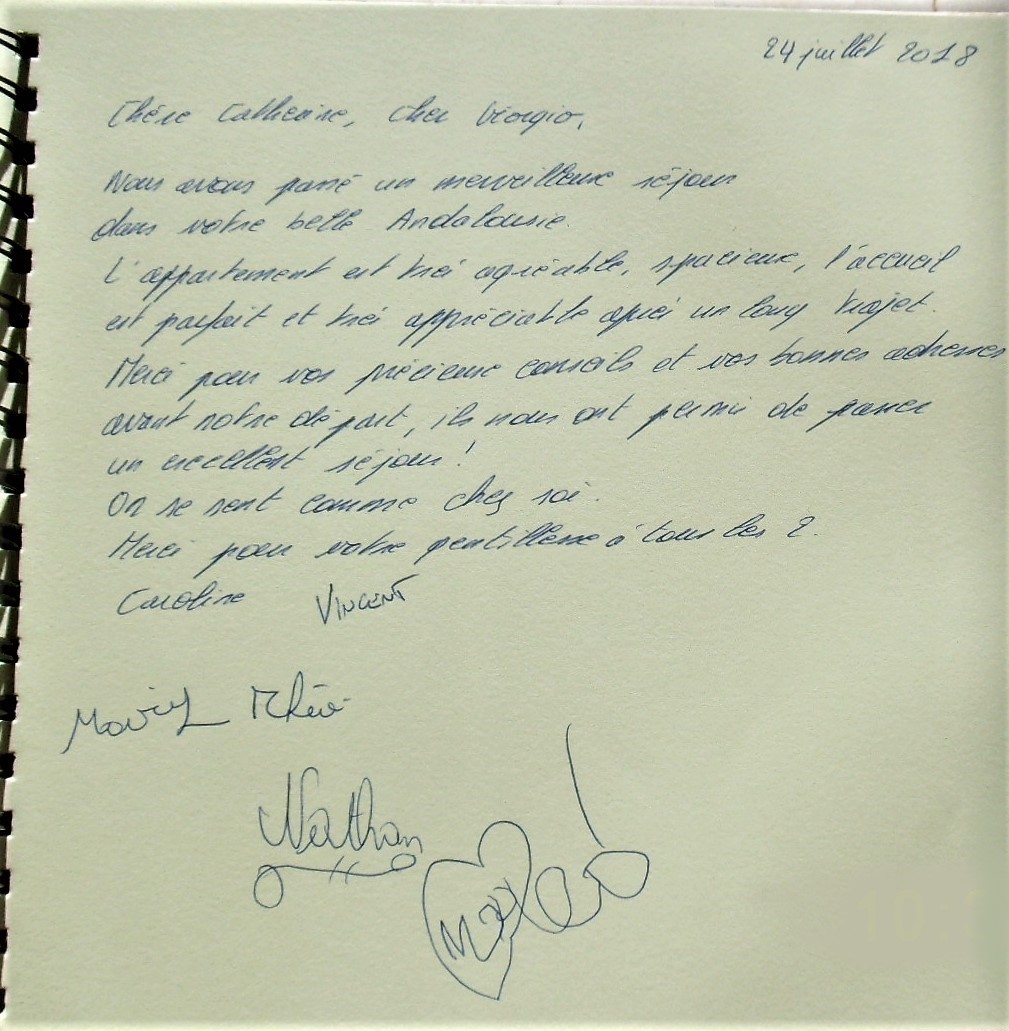 24 juillet 2018
Chère Catherine, Cher Giorgio,
Nous avons passé un merveilleux séjour
dans votre belle Andalousie.
L'appartement est très agréable, spacieux, l'accueil
est parfait et très appréciable après un long trajet.
Merci pour vos précieux conseils et vos bonnes adresses
avant notre départ, ils nous ont permis de passer
un excellent séjour !
On se sent comme chez soi.
Merci pour votre gentillesse à tous les 2.
Caroline VINCENT
Nathan